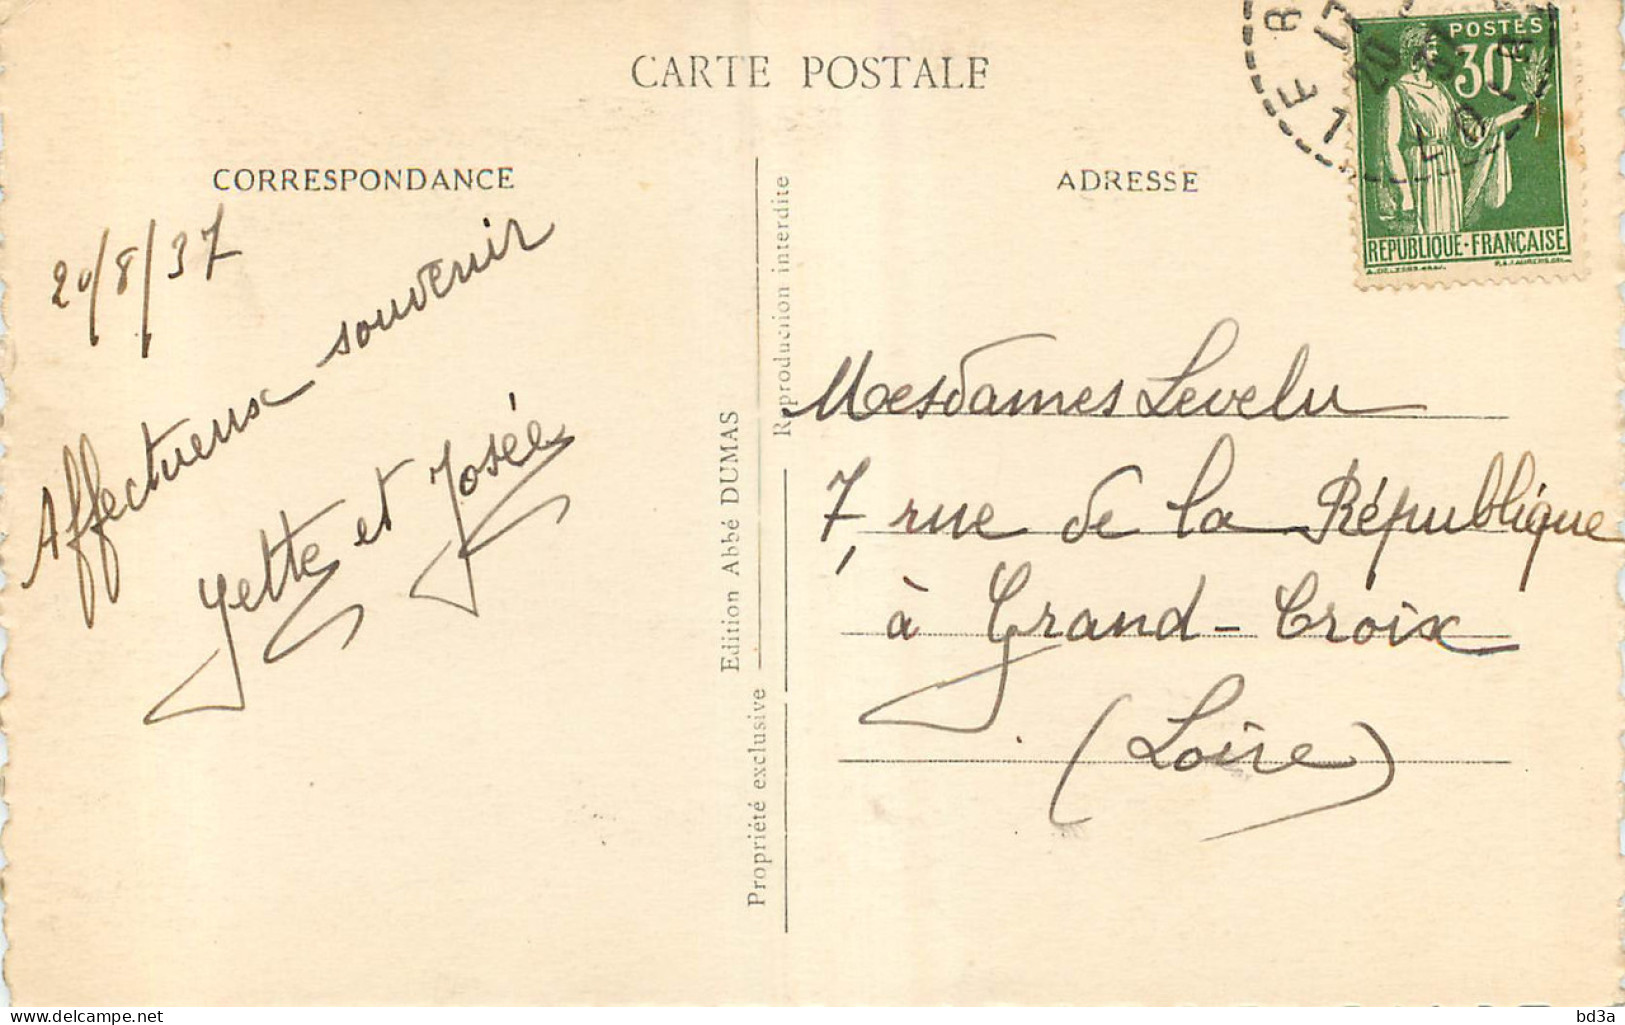 CARTE POSTALE
CORRESPONDANCE
20/8/37
Affectueux souvenir
Yette et Josée
Propriété exclusive
Edition Abbé DUMAS
Reproduction interdite
ADRESSE
POSTES
30
REPUBLIQUE·FRANÇAISE
Mesdames Levelu
7, rue de la République
à Grand-Croix
(Loire)
www.delcampe.net
bd3a